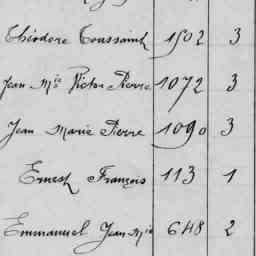 Théodore Toussaint 1502 3
Jean Mie Victor Pierre 1072 3
Jean Marie Pierre 1090 3
Ernest François 113 1
Emmanuel Jean Mie 648 2